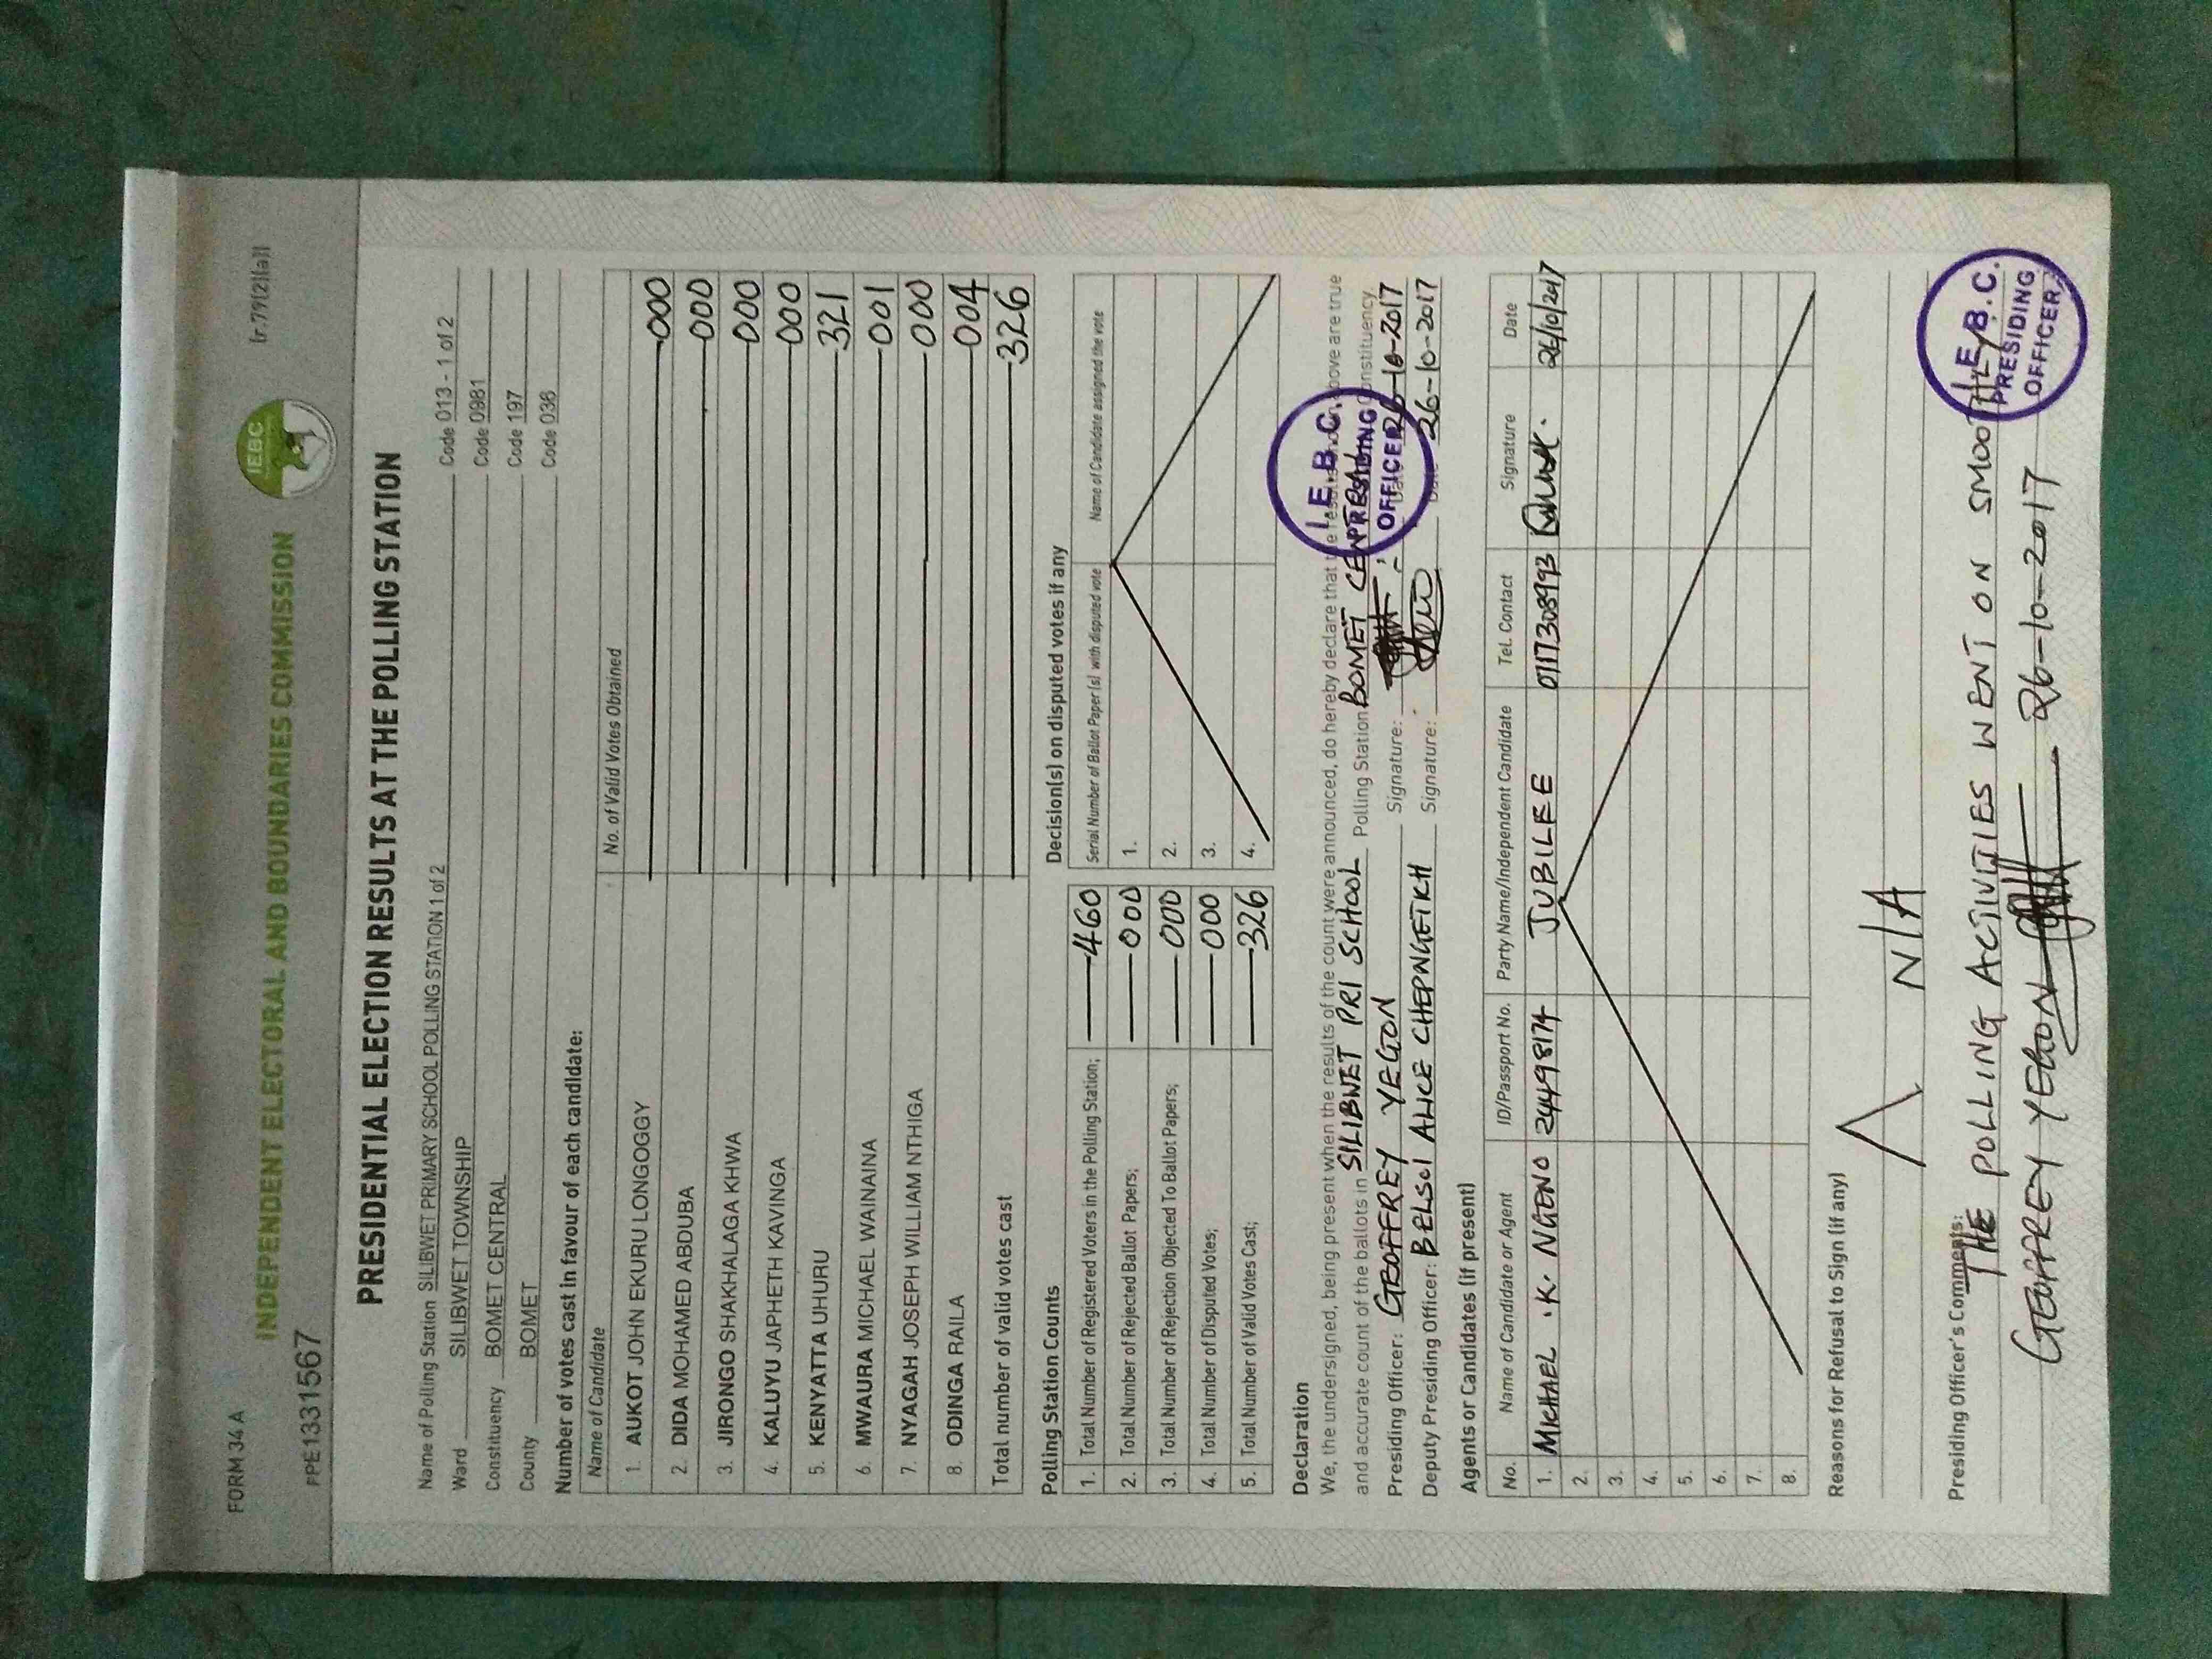 FORM 34 A
(r.79(2)(a))
IEBC
INDEPENDENT ELECTORAL AND BOUNDARIES COMMISSION
PPE1331567
PRESIDENTIAL ELECTION RESULTS AT THE POLLING STATION
Name of Polling Station SILIBWET PRIMARY SCHOOL POLLING STATION 1 of 2 Code 013 - 1 of 2
Ward SILIBWET TOWNSHIP Code 0981
Constituency BOMET CENTRAL Code 197
County BOMET Code 036
Number of votes cast in favour of each candidate:
Name of Candidate No. of Valid Votes Obtained
1. AUKOT JOHN EKURU LONGOGGY 000
2. DIDA MOHAMED ABDUBA 000
3. JIRONGO SHAKHALAGA KHWA 000
4. KALUYU JAPHETH KAVINGA 000
5. KENYATTA UHURU 321
6. MWAURA MICHAEL WAINAINA 001
7. NYAGAH JOSEPH WILLIAM NTHIGA 000
8. ODINGA RAILA 004
Total number of valid votes cast 326
Polling Station Counts
1. Total Number of Registered Voters in the Polling Station; 460
2. Total Number of Rejected Ballot Papers; 000
3. Total Number of Rejection Objected To Ballot Papers; 000
4. Total Number of Disputed Votes; 000
5. Total Number of Valid Votes Cast; 326
Decision(s) on disputed votes if any
Serial Number of Ballot Paper(s) with disputed vote Name of Candidate assigned the vote
1.
2.
3.
4.
Declaration
We, the undersigned, being present when the results of the count were announced, do hereby declare that the results shown above are true
and accurate count of the ballots in SILIBWET PRI SCHOOL Polling Station BOMET Constituency.
Presiding Officer: GEOFFREY YEGON Signature: Date 26-10-2017
Deputy Presiding Officer: BELSOI ALICE CHEPNGETKH Signature: Date 26-10-2017
I.E.B.C.
PRESIDING
OFFICER
Agents or Candidates (if present)
No. Name of Candidate or Agent ID/Passport No. Party Name/Independent Candidate Tel. Contact Signature Date
1. MICHAEL .K. NGENO 24498174 JUBILEE 0717308993 26/10/2017
2.
3.
4.
5.
6.
7.
8.
Reasons for Refusal to Sign (if any)
N/A
Presiding Officer's Comments:
THE POLLING ACTIVITIES WENT ON SMOOTHLY
GEOFFREY YEGON 26-10-2017
I.E.B.C.
PRESIDING
OFFICER